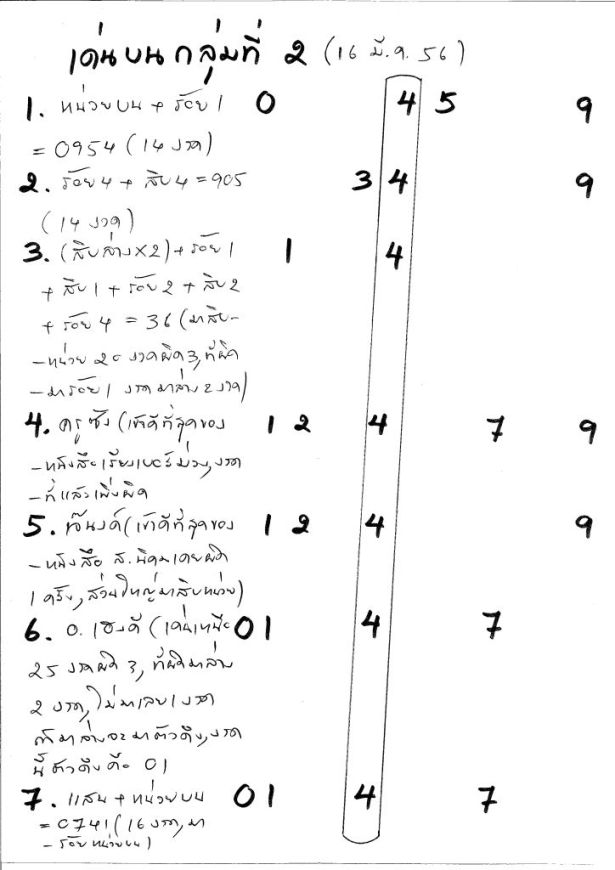 เด่นบนกลุ่มที่ 2 (16 มี.ค. 56)
1. หน่วยบน + ร้อย 1 0 4 5 9
= 0954 (14 งวด)
2. ร้อย 4 + สิบ 4 = 905 3 4 9
(14 งวด)
3. (สิบล่าง×2) + ร้อย 1 1 4
+ สิบ 1 + ร้อย 2 + สิบ 2
+ ร้อย 4 = 36 (มาสิบ-
-หน่วย 20 งวดผิด 3, ที่ผิด
-มาร้อย 1 งวด มาล่าง 2 งวด)
4. ครูซัง (เข้าดีที่สุดของ 1 2 4 7 9
-หนังสือเรียงเบอร์ม่วง, งวด
-ที่แล้วเพิ่งผิด
5. (เข้าดีที่สุดของ 1 2 4 9
-หนังสือ ส. เคยผิด
1 ครั้ง, ส่วนใหญ่มาสิบหน่วย)
6. อ. เฮงดี (เด่นเหนือ 0 1 4 7
25 งวดผิด 3, ที่ผิดมาล่าง
2 งวด, ไม่มาเลย 1 งวด
ถ้ามาล่างจะมาตัวดึง, งวด
นี้ตัวดึงคือ 01
7. แสน + หน่วยบน 0 1 4 7
= 0741 (16 งวด, มา
-ร้อยหน่วยบน)